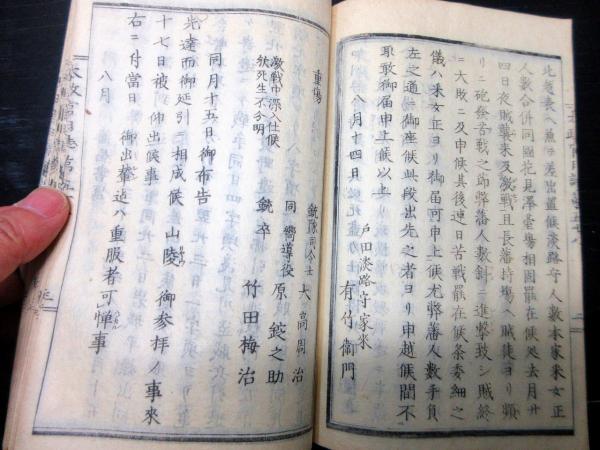 此表ヘ兼テ差出置候淡路守人数本家釆女正
人数合併同國花見澤臺場相固罷在候処去月廿
四日夜賊襲来及激戦且長藩持場ヘ賊徒ヨリ頻
リニ砲發苦戦之節弊藩人数斜ニ進撃致シ賊終
ニ大敗ニ及申候其後連日苦戦罷在候条委細之
儀ハ釆女正ヨリ御届可申上候尤弊藩人数手負
左之通ニ御座候此段出先之者ヨリ申越候間不
取敢御届申上候以上
八月十四日
戸田淡路守家来
有竹衛門
重傷
銃隊司令士
大嶌周治
同嚮導役
原錠之助
激戦中深入仕候
銃卒
竹田梅治
状死生不分明
同月十五日御布告
先達而御延引ニ相成候山陵御参拝ノ事来
十七日被仰出候事
右ニ付當日御出輦迄ハ重服者可憚事
八月
太政官日誌第五十八